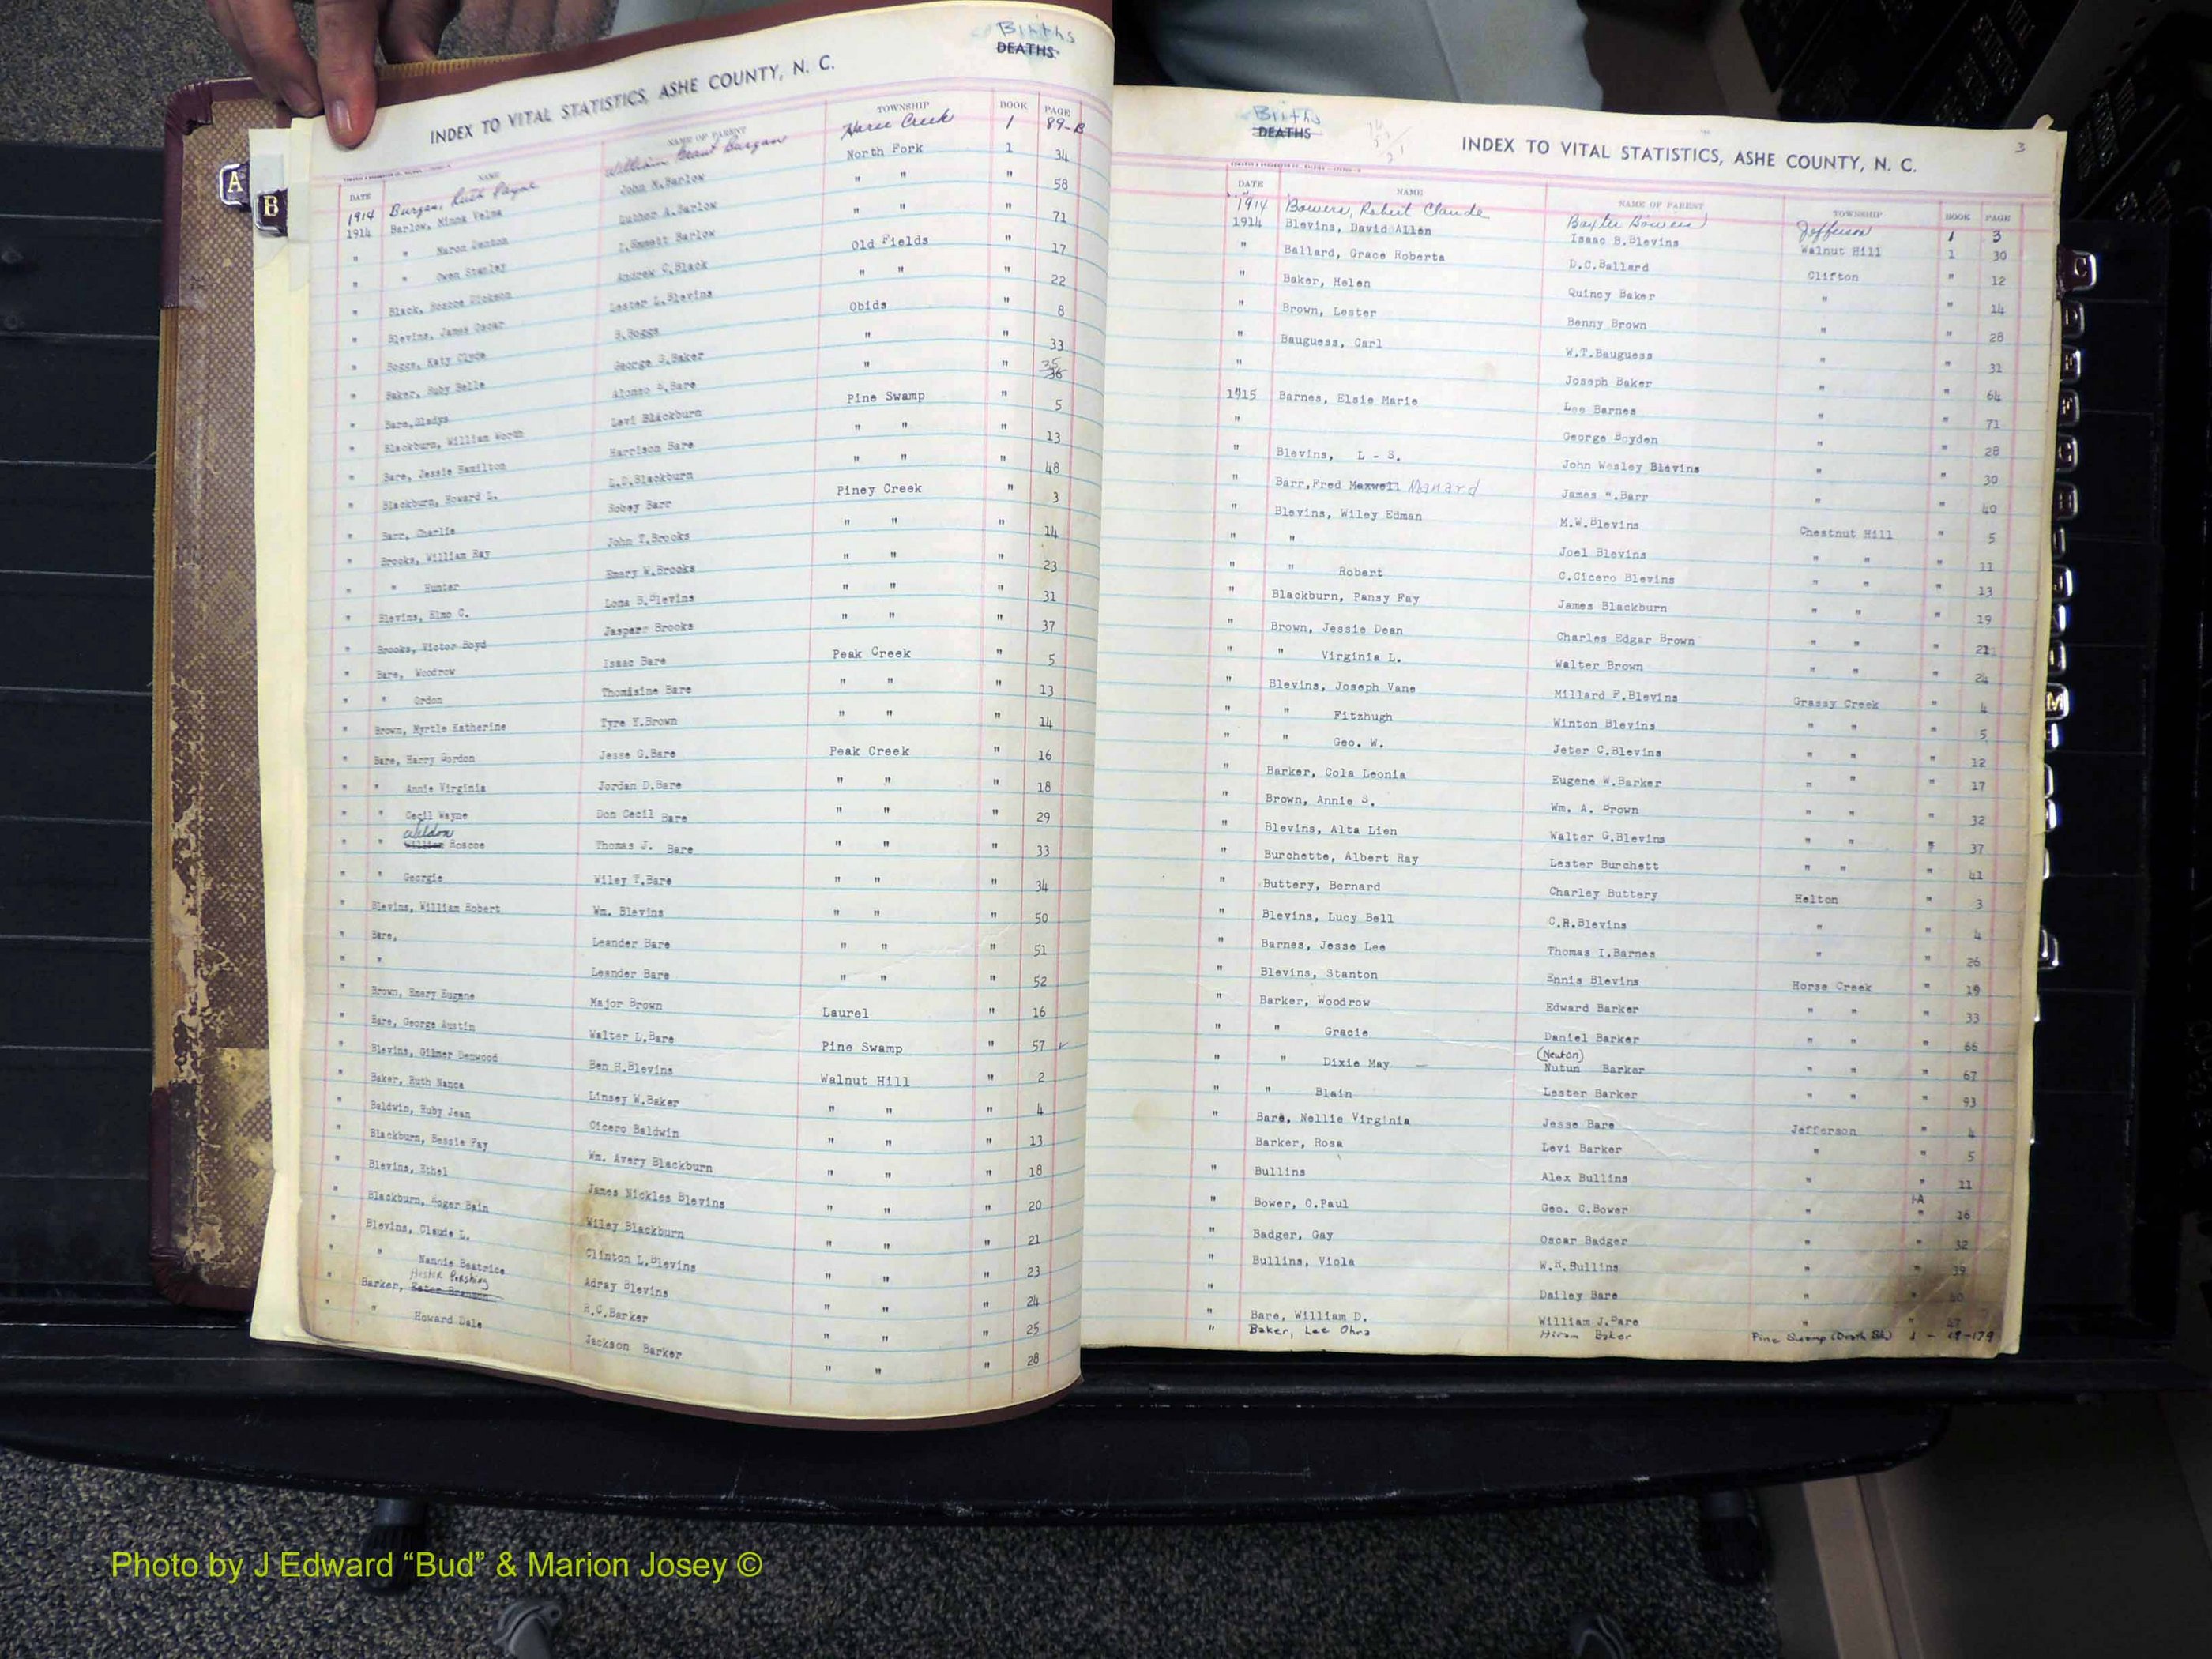 Births
DEATHS
INDEX TO VITAL STATISTICS, ASHE COUNTY, N. C.
DATE NAME NAME OF PARENT TOWNSHIP BOOK PAGE
1914 Burgan, Ruth Payne William Grant Burgan Horse Creek 1 89-B
1914 Barlow, Minna Velma John N.Barlow North Fork 1 34
" " Maron Denton Luther A.Barlow " " " 58
" " Owen Stanley I.Emmett Barlow " " " 71
" Black, Roscoe Dickson Andrew C.Black Old Fields " 17
" Blevins, James Oscar Lester L.Blevins " " " 22
" Boggs, Katy Clyde S.Boggs Obids " 8
" Baker, Ruby Belle George G.Baker " " 33
" Bare,Gladys Alonzo S.Bare " " 35
" Blackburn, William Worth Levi Blackburn Pine Swamp " 5
" Bare, Jessie Hamilton Harrison Bare " " " 13
" Blackburn, Howard L. L.D.Blackburn " " " 48
" Barr, Charlie Robey Barr Piney Creek " 3
" Brooks, William Ray John T.Brooks " " " 14
" " Hunter Emory W.Brooks " " " 23
" Blevins, Elmo C. Loma B.Blevins " " " 31
" Brooks, Victor Boyd Jasper Brooks " " " 37
" Bare, Woodrow Isaac Bare Peak Creek " 5
" " Ordon Thomisine Bare " " " 13
" Brown, Myrtle Katherine Tyre Y.Brown " " " 14
" Bare, Harry Gordon Jesse G.Bare Peak Creek " 16
" " Annie Virginia Jordan D.Bare " " " 18
" " Cecil Wayne Don Cecil Bare " " " 29
Weldon
" " William Roscoe Thomas J. Bare " " " 33
" " Georgie Wiley T.Bare " " " 34
" Blevins, William Robert Wm. Blevins " " " 50
" Bare, Leander Bare " " " 51
" " Leander Bare " " " 52
" Brown, Emery Eugene Major Brown Laurel " 16
" Bare, George Austin Walter L.Bare Pine Swamp " 57
" Blevins, Gilmer Denwood Ben H.Blevins Walnut Hill " 2
" Baker, Ruth Nance Linsey W.Baker " " " 4
" Baldwin, Ruby Jean Cicero Baldwin " " " 13
" Blackburn, Bessie Fay Wm. Avery Blackburn " " " 18
" Blevins, Ethel James Nickles Blevins " " " 20
" Blackburn, Roger Bain Wiley Blackburn " " " 21
" Blevins, Claude L. Clinton L.Blevins " " " 23
" " Nannie Beatrice Adray Blevins " " " 24
Hester Pershing
" Barker, Ester Branson R.C.Barker " " " 25
" " Howard Dale Jackson Barker " " " 28
Births
DEATHS
INDEX TO VITAL STATISTICS, ASHE COUNTY, N. C.
3
DATE NAME NAME OF PARENT TOWNSHIP BOOK PAGE
1914 Bowers, Robert Claude Baxter Bowers Jefferson 1 3
1914 Blevins, David Allen Isaac B.Blevins Walnut Hill 1 30
" Ballard, Grace Roberta D.C.Ballard Clifton " 12
" Baker, Helen Quincy Baker " " 14
" Brown, Lester Benny Brown " " 28
" Bauguess, Carl W.T.Bauguess " " 31
" Joseph Baker " " 64
1915 Barnes, Elsie Marie Lee Barnes " " 71
" George Boyden " " 28
" Blevins, L - S. John Wesley Blevins " " 30
" Barr,Fred Maxwell Manard James W.Barr " " 40
" Blevins, Wiley Edman M.W.Blevins Chestnut Hill " 5
" " Joel Blevins " " " 11
" " Robert C.Cicero Blevins " " " 13
" Blackburn, Pansy Fay James Blackburn " " " 19
" Brown, Jessie Dean Charles Edgar Brown " " " 21
" " Virginia L. Walter Brown " " " 24
" Blevins, Joseph Vane Millard F.Blevins Grassy Creek " 4
" " Fitzhugh Winton Blevins " " " 5
" " Geo. W. Jeter C.Blevins " " " 12
" Barker, Cola Leonia Eugene W.Barker " " " 17
" Brown, Annie S. Wm. A. Brown " " " 32
" Blevins, Alta Lien Walter G.Blevins " " " 37
" Burchette, Albert Ray Lester Burchett " " " 41
" Buttery, Bernard Charley Buttery Helton " 3
" Blevins, Lucy Bell C.R.Blevins " " 4
" Barnes, Jesse Lee Thomas I.Barnes " " 26
" Blevins, Stanton Ennis Blevins Horse Creek " 19
" Barker, Woodrow Edward Barker " " " 33
" " Gracie Daniel Barker " " " 66
(Newton)
" " Dixie May — Nutun Barker " " " 67
" " Blain Lester Barker " " " 93
" Bare, Nellie Virginia Jesse Bare Jefferson " 4
Barker, Rosa Levi Barker " " 5
" Bullins Alex Bullins " " 11
" Bower, O.Paul Geo. C.Bower " 1A " 16
" Badger, Gay Oscar Badger " " 32
" Bullins, Viola W.R.Bullins " " 39
" Dailey Bare " " 40
" Bare, William D. William J.Bare " " 47
" Baker, Lee Ohra Hiram Baker Pine Swamp (Death Sh) 1 - 19-179
A
B
C
M
Photo by J Edward “Bud” & Marion Josey ©